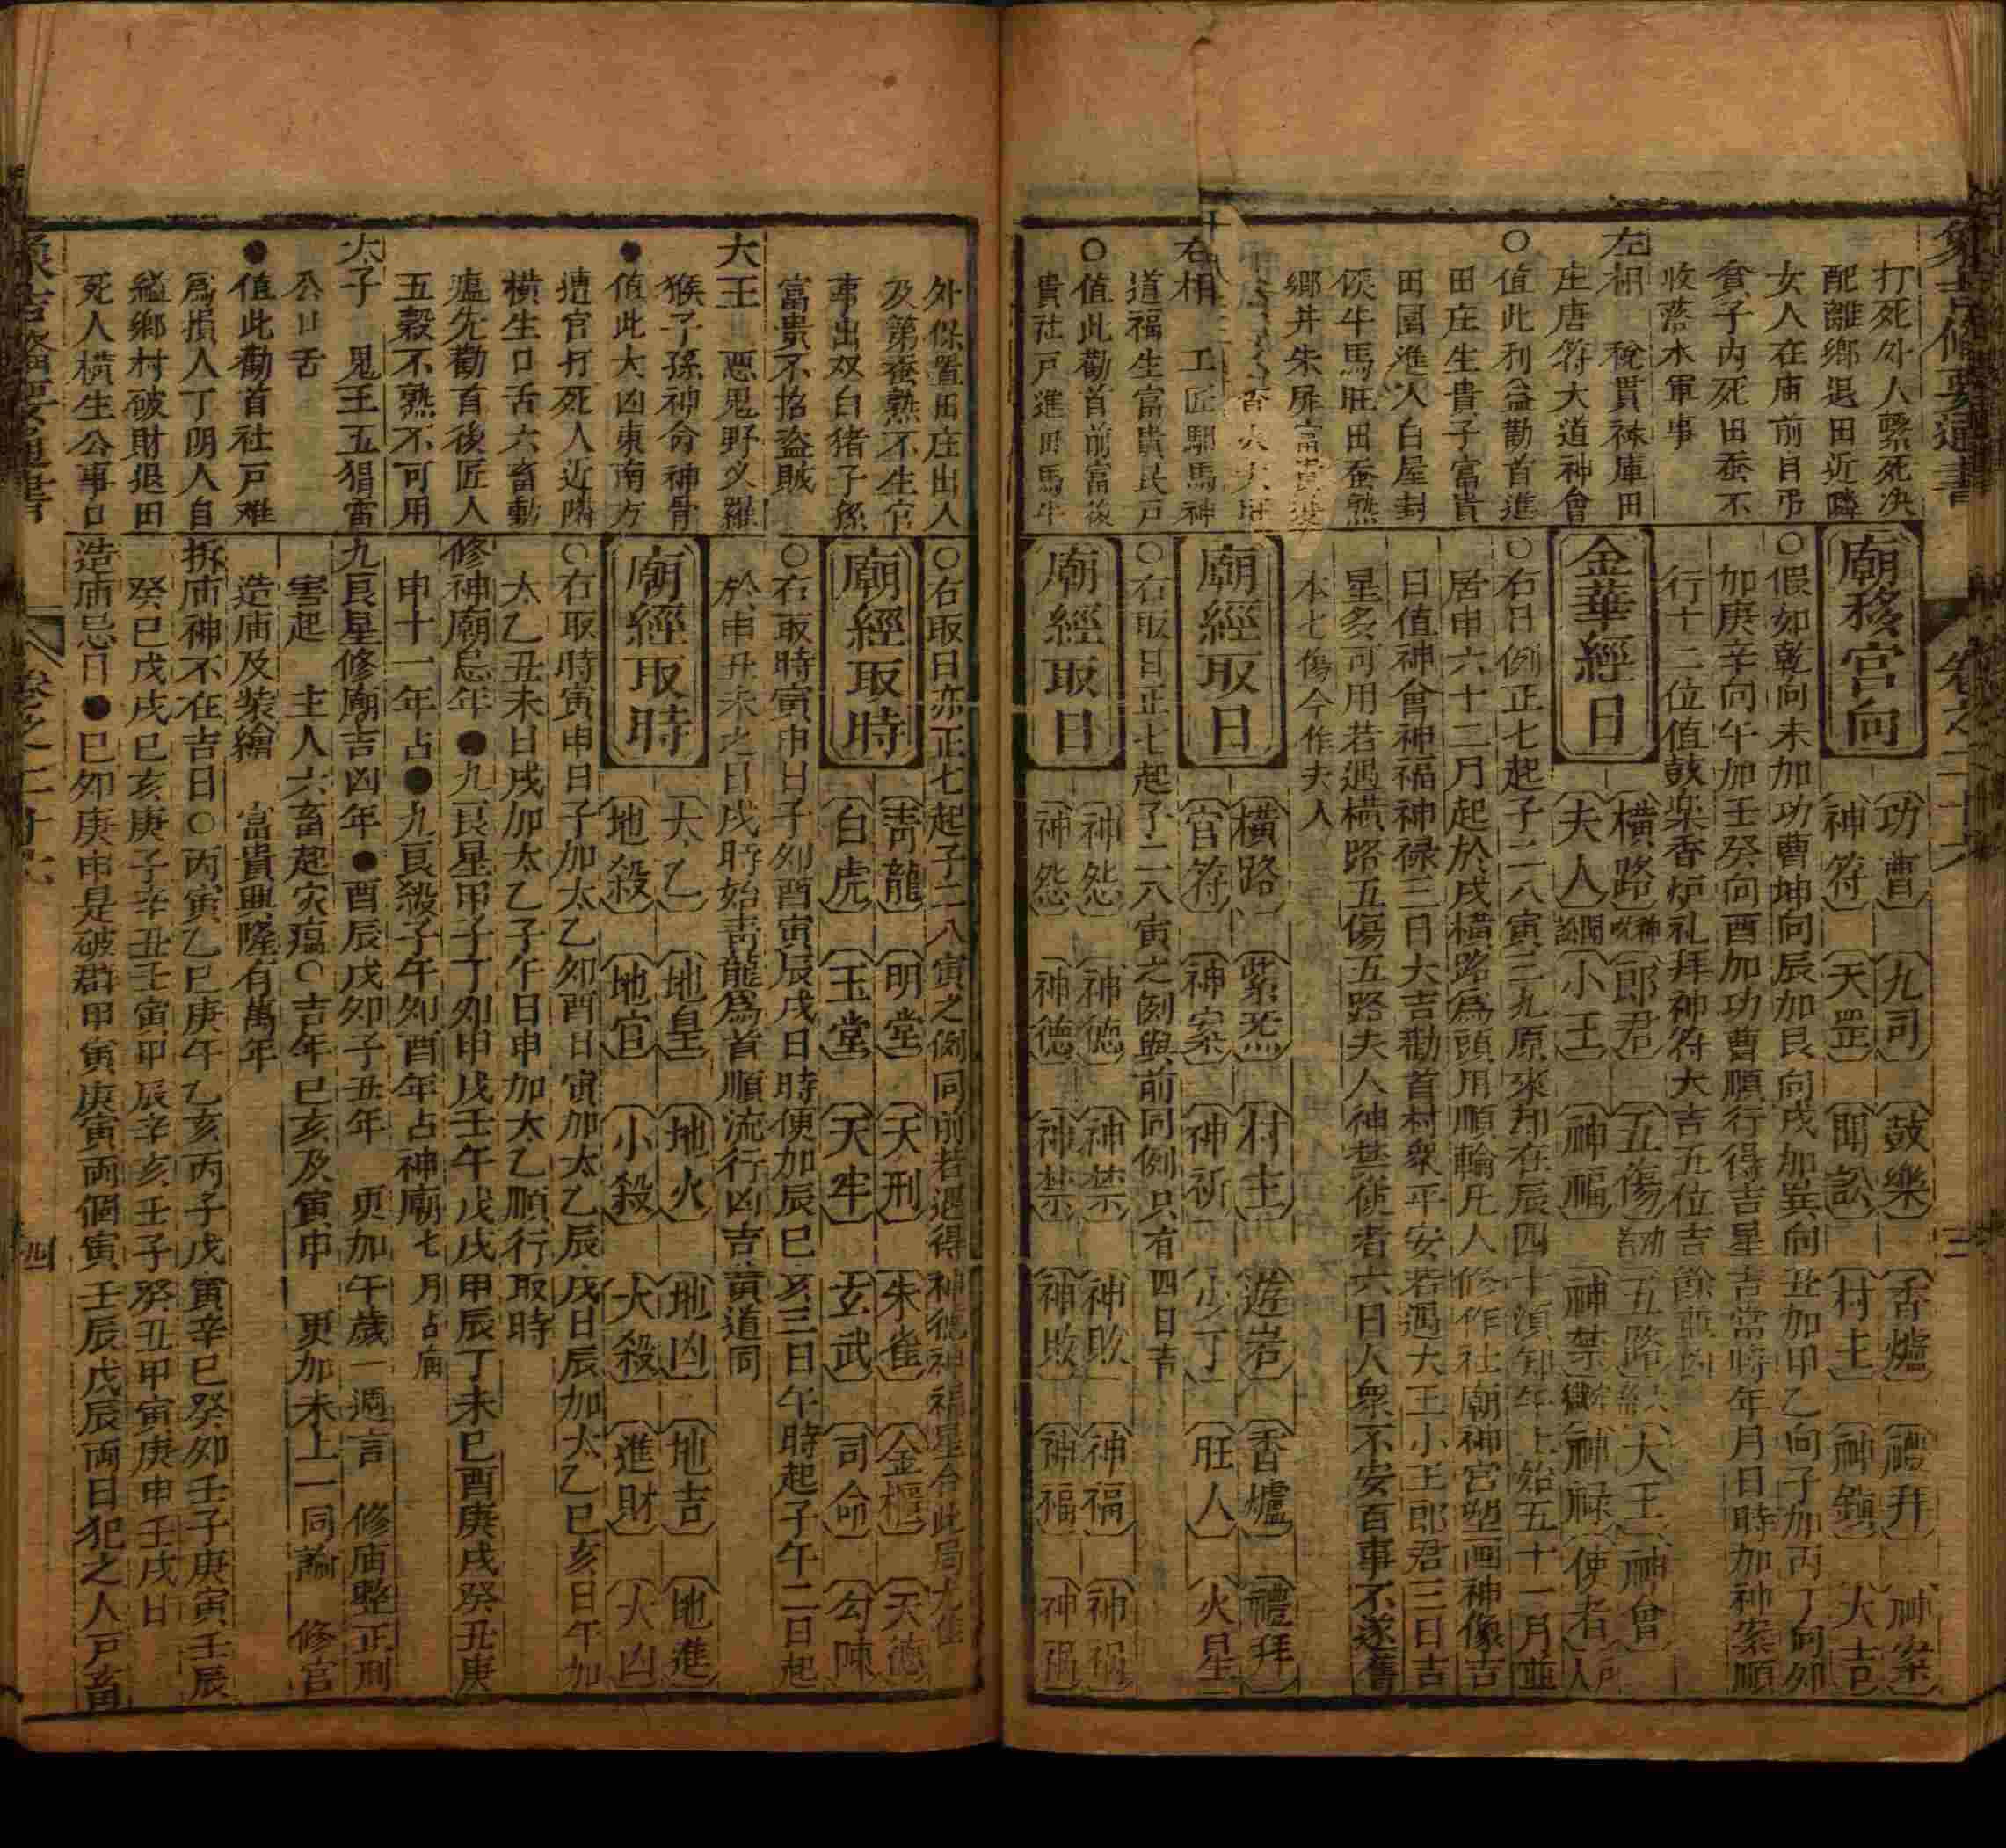 打死外人繫死决
配離鄉退田近隣
女人在庙前自吊
貧子内死田蚕不
收落水軍事
左相 稅買祿庫田
庄唐符大道神會
○值此利益勸首進
田庄生貴子富貴
田園進人白屋封
侯牛馬旺田蚕熟
鄉井朱屏富貴
右相 工匠駟馬神
道福生富貴民戸
○值此勸首前富後
貴社戸進田馬牛
廟移宮向
功曹 九司 鼓樂 香爐 禮拜 神案
神符 天罡 聞訟 村主 神鎮 大吉
○假如乾向未加功曹坤向辰加艮向戌加巽向丑加甲乙向子加丙丁向夘
加庚辛向午加壬癸向酉加功曹順行得吉星吉當時年月日時加神案順
行十二位值鼓楽香炉礼拜神符大吉五位吉餘並凶
金華經日
橫路 郎君 五傷 五路 大王 神會
夫人 小王 神福 神禁 神禄 使者
○右日例正七起子二八寅三九原來却在辰四十須知午上始五十一月並
居申六十二月起於戌橫路為頭用順輪凡人修作社廟神宮塑画神像吉
日值神會神福神禄三日大吉勸首村衆平安若遇大王小王郎君三日吉
星多可用若遇橫路五傷五路夫人神禁使者六日人衆不安百事不遂舊
本七傷今作夫人
廟經取日
橫路 紫炁 村主 遊岩 香爐 禮拜
官符 神案 神祈 少丁 旺人 火星
○右取日正七起子二八寅之例與前同例只有四日吉
廟經取日
神怨 神德 神禁 神敗 神福 神禍
神怨 神德 神禁 神敗 神福 神禍
外保置田庄出人
及第蚕熟不生官
事出双白猪子孫
富貴不招盜賊
大王 惡鬼野义羅
猴子孫神命神骨
●值此大凶東南方
遭官打死人近隣
橫生口舌六畜動
瘟先勸首後匠人
五穀不熟不可用
太子 鬼王五猖雷
公口舌
●值此勸首社戸难
爲損人丁阴人自
縊鄉村破財退田
死人橫生公事口
○右取日亦正七起子二八寅之例同前若遇得神德神福星合此局尤佳
廟經取時
青龍 明堂 天刑 朱雀 金樻 天德
白虎 玉堂 天牢 玄武 司命 勾陳
○右取時寅申日子夘酉寅辰戌日時便加辰巳亥三日午時起子午二日起
於申丑未之日戌時始青龍爲首順流行凶吉黄道同
廟經取時
太乙 地皇 地火 地凶 地吉 地進
地殺 地官 小殺 大殺 進財 大凶
○右取時寅申日子加太乙夘酉日寅加太乙辰戌日辰加太乙巳亥日午加
太乙丑未日戌加太乙子午日申加太乙順行取時
修神廟忌年●九艮星甲子丁夘申戌壬午戊戌甲辰丁未巳酉庚戌癸丑庚
申十一年占●九艮殺子午夘酉年占神廟七月占廟
九艮星修廟吉凶年●酉辰戌夘子丑年 更加午歲一週言 修庙整正刑
害起 主人六畜起灾瘟○吉年巳亥及寅申 更加未上一同論 修官
造庙及裝繪 富貴興隆有萬年
拆庙神不在吉日○丙寅乙巳庚午乙亥丙子戊寅辛巳癸夘壬子庚寅壬辰
癸巳戊戌巳亥庚子辛丑壬寅甲辰辛亥壬子癸丑甲寅庚申壬戌日
造庙忌日●巳夘庚申是破群甲寅庚寅両個寅壬辰戊辰両日犯之人戸畜